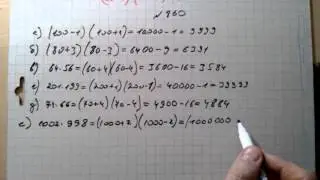 №960
а) (100-1)(100+1)=10000-1=9999
б) (80+3)(80-3)=6400-9=6391
в) 64·56=(60+4)(60-4)=3600-16=3584
г) 201·199=(200+1)(200-1)=40000-1=39999
д) 74·66=(70+4)(70-4)=4900-16=4884
е) 1002·998=(1000+2)(1000-2)=1000000